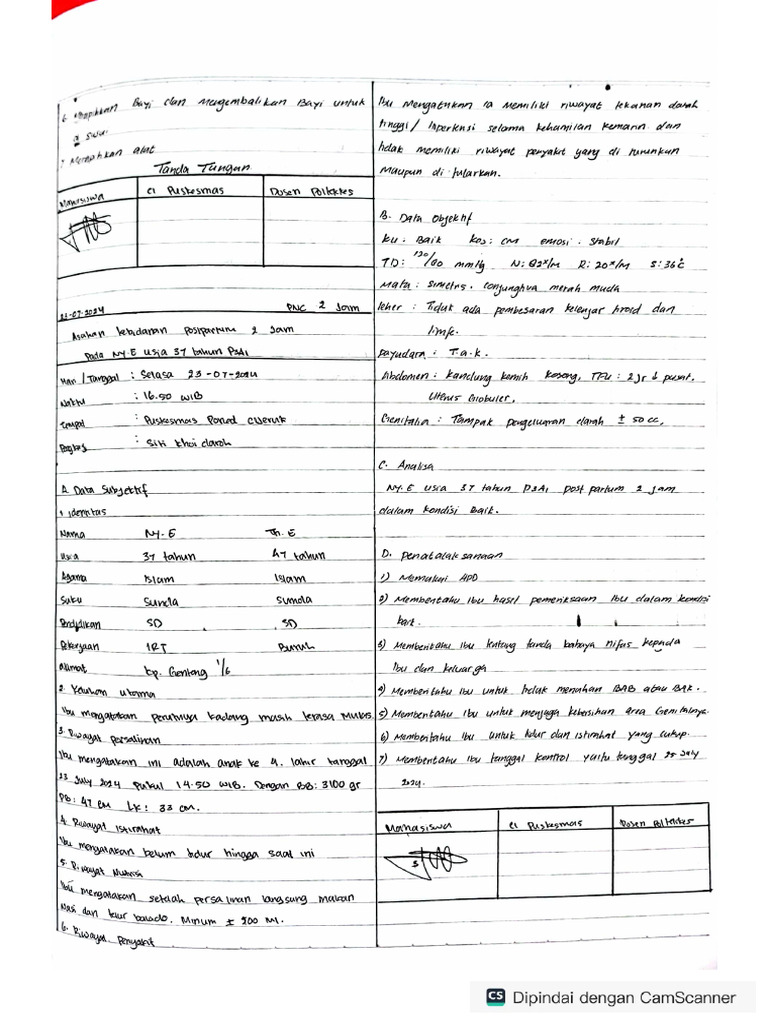 6. Merapihkan Bayi dan Mengembalikan Bayi untuk
di susui
7. Merapihkan alat
Tanda Tangan
Mahasiswa CI Puskesmas Dosen Poltekkes
23-07-2024 PNC 2 Jam
Asuhan kebidanan postpartum 2 Jam
pada NY.E usia 37 tahun P3A1
Hari/Tanggal : Selasa 23-07-2024
Waktu : 16.50 WIB
Tempat : Puskesmas Poned
: Siti Khoidaroh
A. Data Subjektif
1. Identitas
Nama NY.E Tn.E
Usia 37 tahun 47 tahun
Agama Islam Islam
Suku Sunda Sunda
Pendidikan SD SD
Pekerjaan IRT Buruh
Alamat kp. Genteng 1/6
2. Keluhan utama
Ibu mengatakan perutnya kadang masih terasa Mules
3. Riwayat persalinan
Ibu mengatakan ini adalah anak ke 4. lahir tanggal
23 July 2024 Pukul 14.50 WIB. Dengan BB: 3100 gr
PB: 47 CM LK: 33 cm.
4. Riwayat Istirahat
Ibu mengatakan belum tidur hingga saat ini
5. Riwayat Nutrisi
Ibu mengatakan setelah persalinan langsung makan
Nasi dan telur balado. Minum ± 200 Ml.
6. Riwayat Penyakit
Ibu Mengatakan Ia Memiliki riwayat tekanan darah
tinggi / Hipertensi selama kehamilan kemarin dan
tidak memiliki riwayat penyakit yang di turunkan
Maupun di tularkan.
B. Data Objektif
KU: Baik Kes: CM emosi: Stabil
TD: 120/80 mmHg N: 82x/M R: 20x/M S: 36°c
Mata: Simetris. Conjunghva merah muda
leher : Tidak ada pembesaran kelenjar tiroid dan
limfe.
payudara : T.a.k.
Abdomen : kandung kemih kosong, TFU: 2jr ↓ pusat.
Uterus Globuler.
Genitalia : Tampak pengeluaran darah ± 50 cc,
C. Analisa
NY.E usia 37 tahun P3A1 post partum 2 jam
dalam kondisi Baik.
D. penatalaksanaan
1) Memakai APD
2) Memberitahu Ibu hasil pemeriksaan Ibu dalam kondisi
baik.
3) Memberitahu Ibu tentang tanda bahaya nifas kepada
Ibu dan keluarga
4) Memberitahu Ibu untuk tidak menahan BAB atau BAK.
5) Memberitahu Ibu untuk menjaga kebersihan area Genitalnya.
6) Memberitahu Ibu untuk tidur dan istirahat yang cukup.
7) Memberitahu Ibu tanggal kontrol yaitu tanggal 25 July
2024.
Mahasiswa CI Puskesmas Dosen Poltekkes
CS Dipindai dengan CamScanner